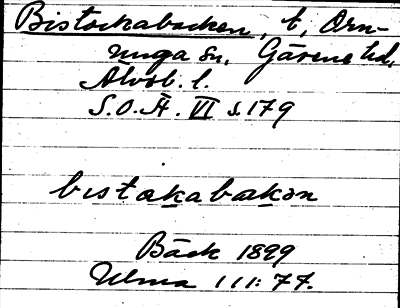 Bistockabacken, t, Orn-
nunga sn, Gäsene hd,
Älvsb. l.
S.O.Ä. VI s.179
bistakabakan
Bäck 1899
Ulma 111:77.